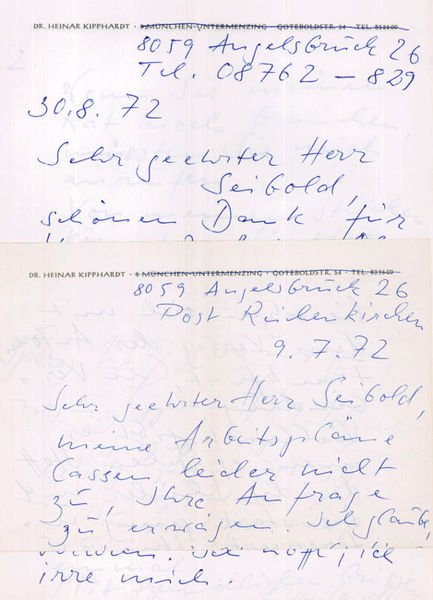 DR. HEINAR KIPPHARDT · 8 MÜNCHEN-UNTERMENZING · GOTEBOLDSTR. 54 · TEL. 83 26 00
8059 Angelsbruck 26
Tel. 08762 – 829
30.8.72
Sehr geehrter Herr
Seibold,
schönen Dank für
DR. HEINAR KIPPHARDT · 8 MÜNCHEN-UNTERMENZING · GOTEBOLDSTR. 54 · TEL. 83 26 00
8059 Angelsbruck 26
Post Reichenkirchen
9.7.72
Sehr geehrter Herr Seibold,
meine Arbeitspläne
lassen leider nicht
zu, Ihre Anfrage
zu erwägen. Ich glaube,
irre mich.